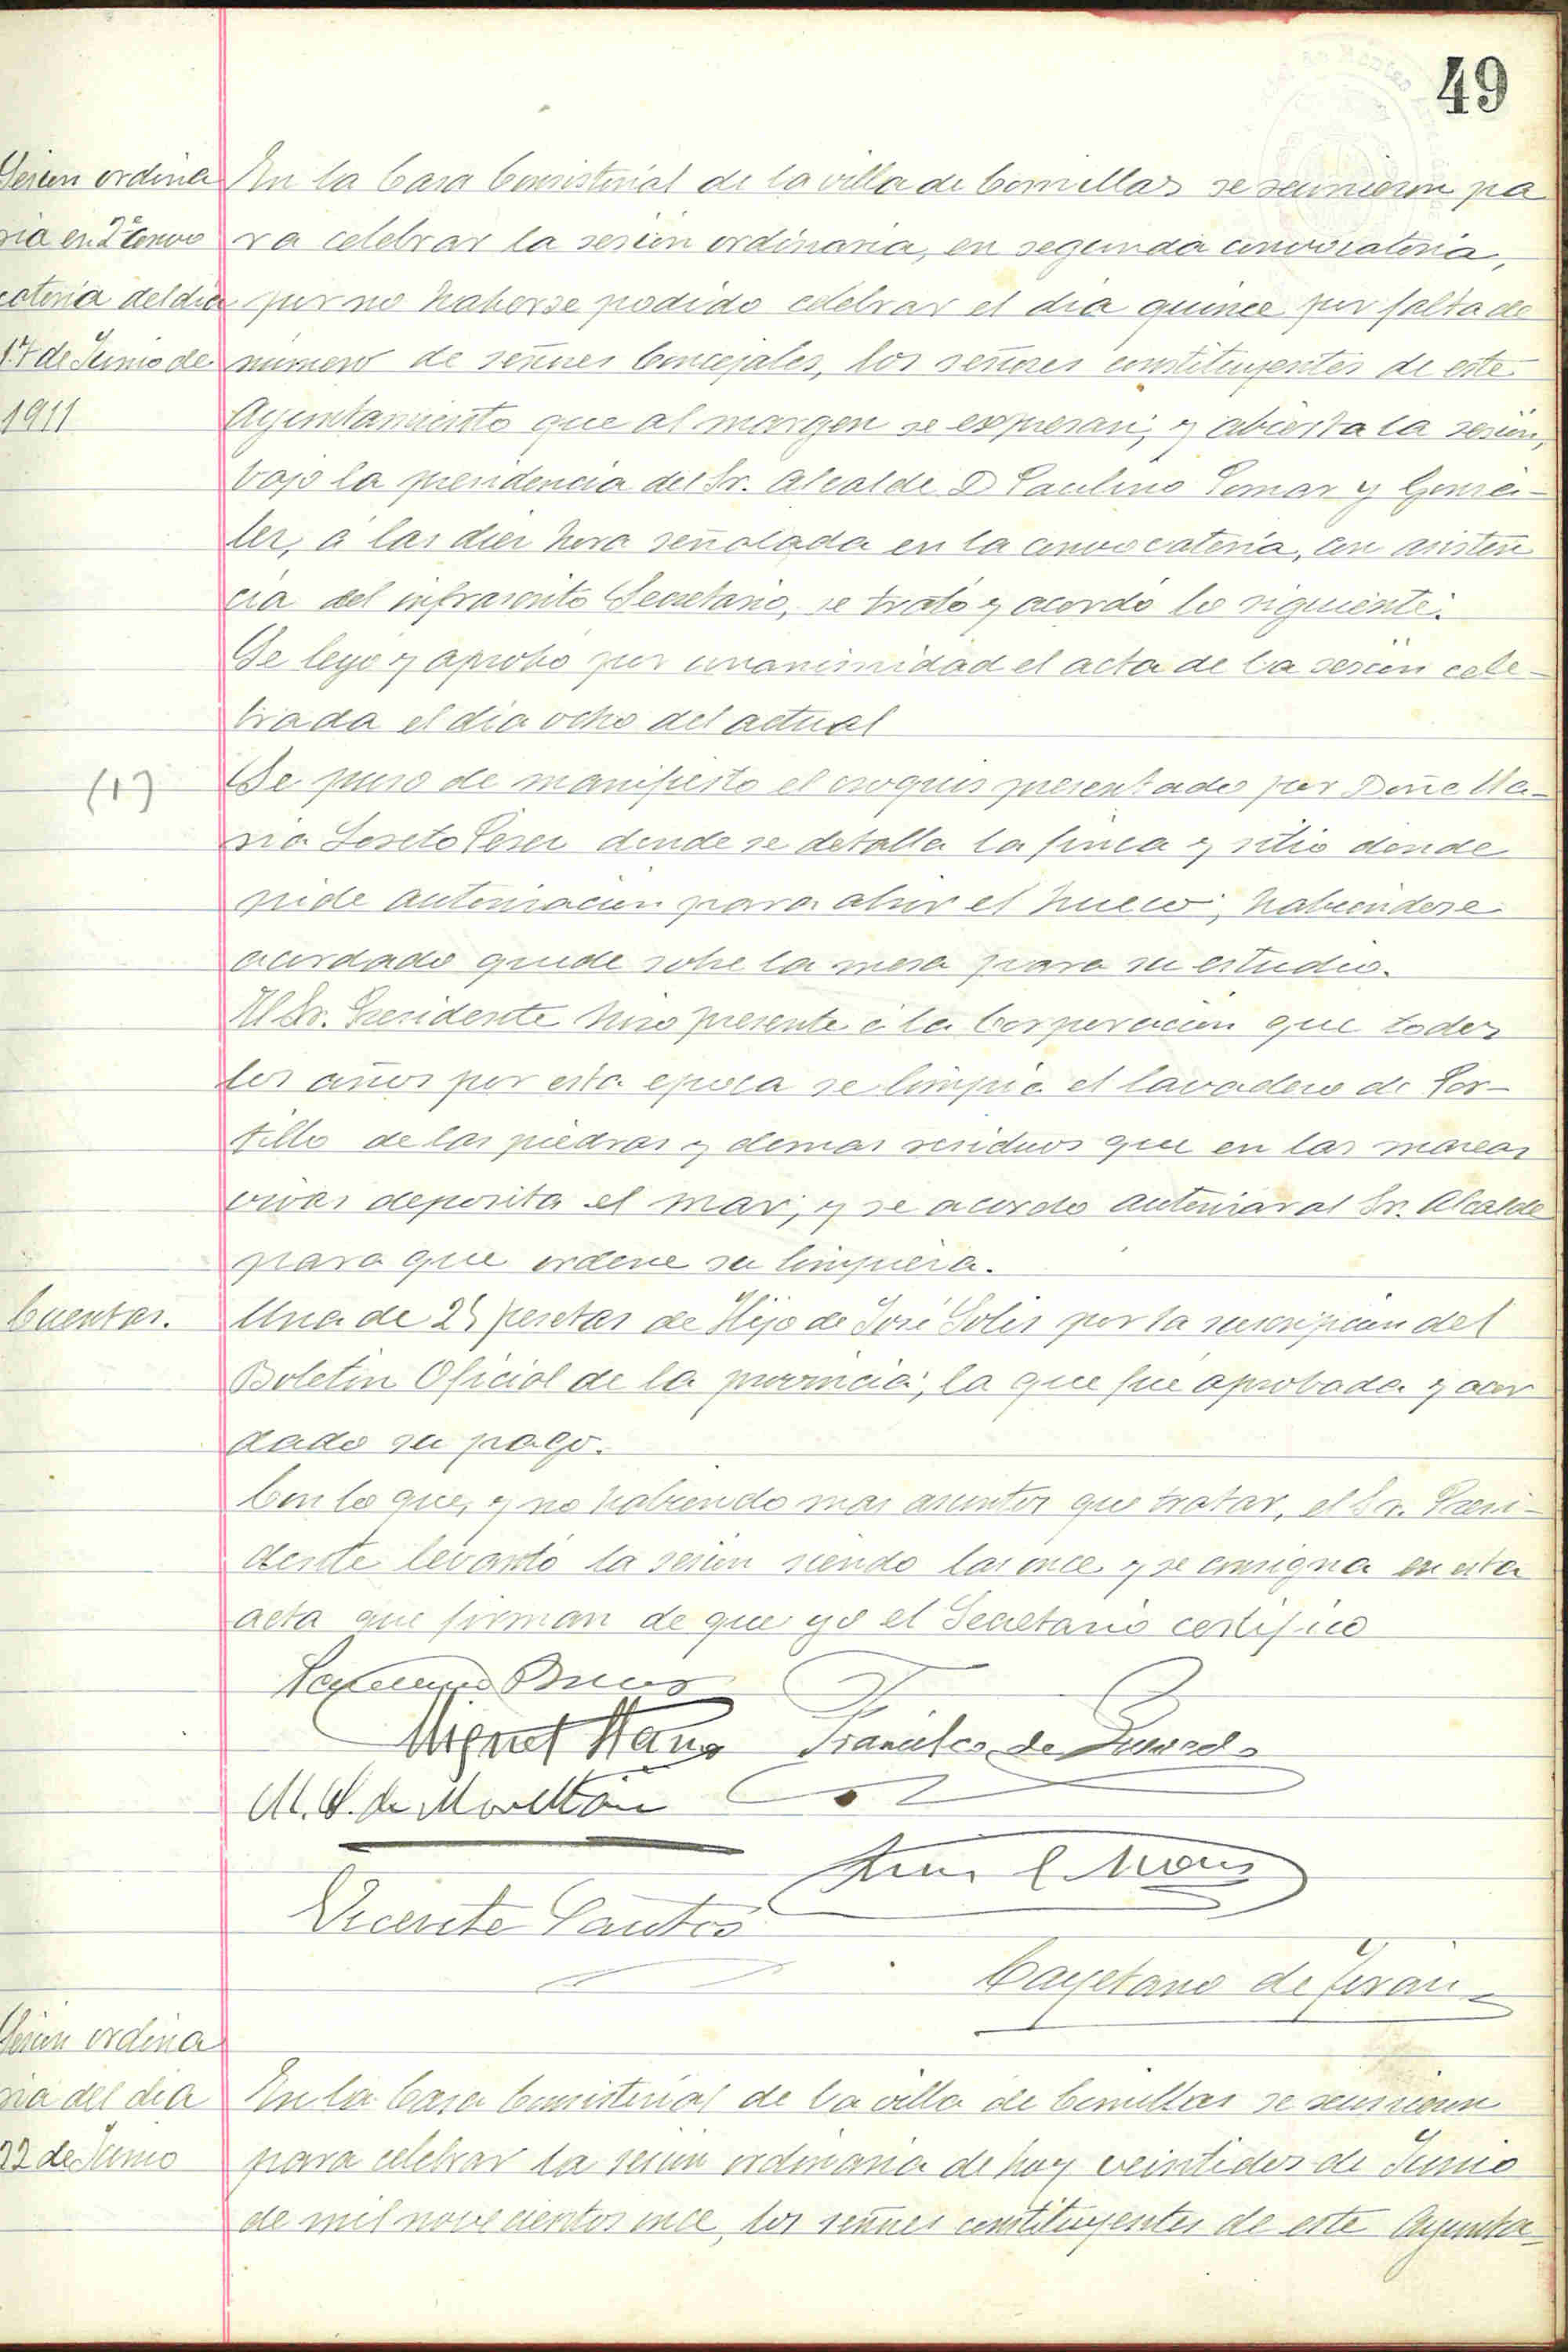 49
Sesion ordina
ria en 2ª convo
catoria del dia
17 de Junio de
1911
En la Casa Consistorial de la villa de Comillas se reunieron pa
ra celebrar la sesion ordinaria, en segunda convocatoria,
por no haberse podido celebrar el dia quince por falta de
numero de señores Concejales, los señores constituyentes de este
Ayuntamiento que al margen se expresan; y abierta la sesion,
bajo la presidencia del Sr. Alcalde D Paulino
á las diez hora señalada en la convocatoria, con asisten
cia del infrascrito Secretario, se trató y acordó lo siguiente:
Se leyo y aprobo por unanimidad el acta de la sesion cele-
brada el dia ocho del actual
(1)
Se puso de manifiesto el croquis presentado por Doña Ma-
ria donde se detalla la finca y sitio donde
pide autorizacion para abrir el hueco; habiendose
acordado quede sobre la mesa para su estudio.
El Sr. Presidente hizo presente á la Corporacion que todos
los años por esta epoca se limpia el lavadero de Por-
tillo de las piedras y demas residuos que en las mareas
vivas deposita el mar; y se acordo autorizar al Sr. Alcalde
para que ordene su limpieza.
Cuentas.
Una de 25 pesetas de Hijo de José Solis por la suscripcion del
Boletin Oficial de la provincia; la que fue aprobada y acor
dado su pago.
Con lo que, y no habiendo mas asuntos que tratar, el Sr. Presi-
dente levantó la sesion siendo las once y se consigna en esta
acta que firman de que yo el Secretario certifico
Miguel
Francisco de
M. S. de Movellán
Vicente Santos
Cayetano de Teran
Sesion ordina
ria del dia
22 de Junio
En la Casa Consistorial de la villa de Comillas se reunieron
para celebrar la sesion ordinaria de hoy veintidos de Junio
de mil novecientos once, los señores constituyentes de este Ayunta-